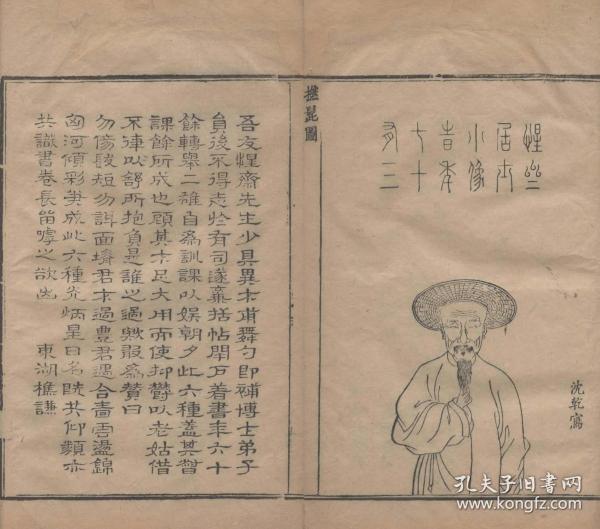 惺亝
居士
小像
旹年
七十
有三
沈乾寫
撚髭圖
吾友惺齋先生少具異才甫舞勺即補博士弟子
員後不得志於有司遂棄括帖閉戶著書年六十
餘轉舉二雄自為訓課以娛朝夕此六種蓋其督
課餘所成也顧其才足大用而使抑鬱以老姑借
不律以舒所抱負是誰之過歟爰為贊曰
勿傷髮短勿訝面瘠君才過豐君遇合嗇雲盪錦
匈河傾彩筆成此六種光炳星日名旣共仰䫉亦
共識書卷長留嘑之欲出 東湖樵謙
孔夫子旧书网
kongfz.com